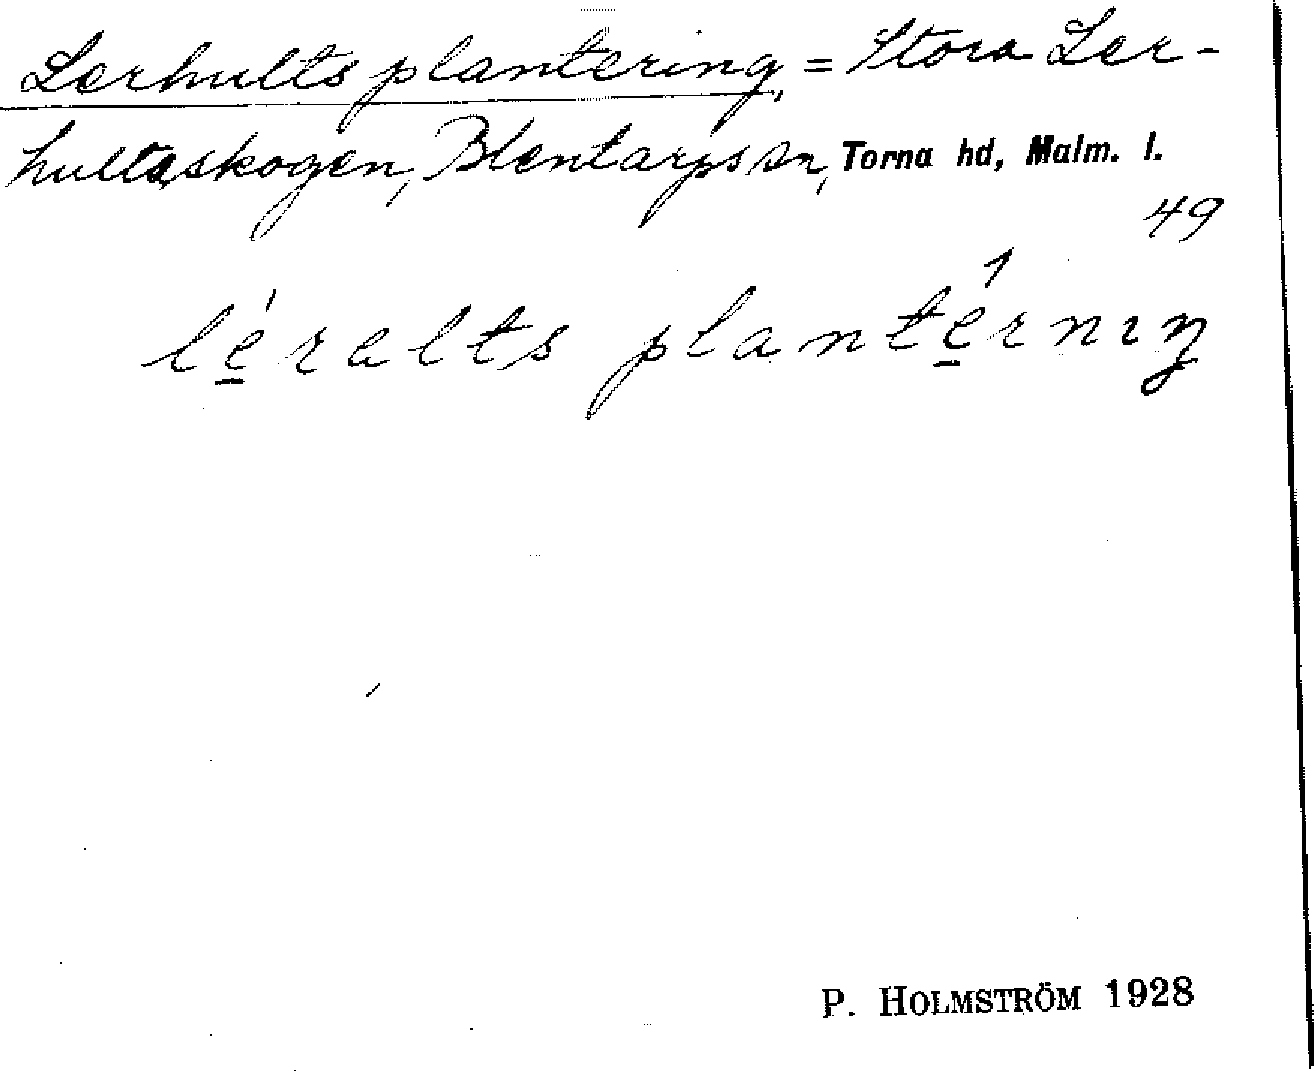 Lerhults plantering, = Stora Ler-
hultaskogen, Blentarps sn, Torna hd, Malm. l.
49
lé̱relts planté̱rnıŋ
P. HOLMSTRÖM 1928